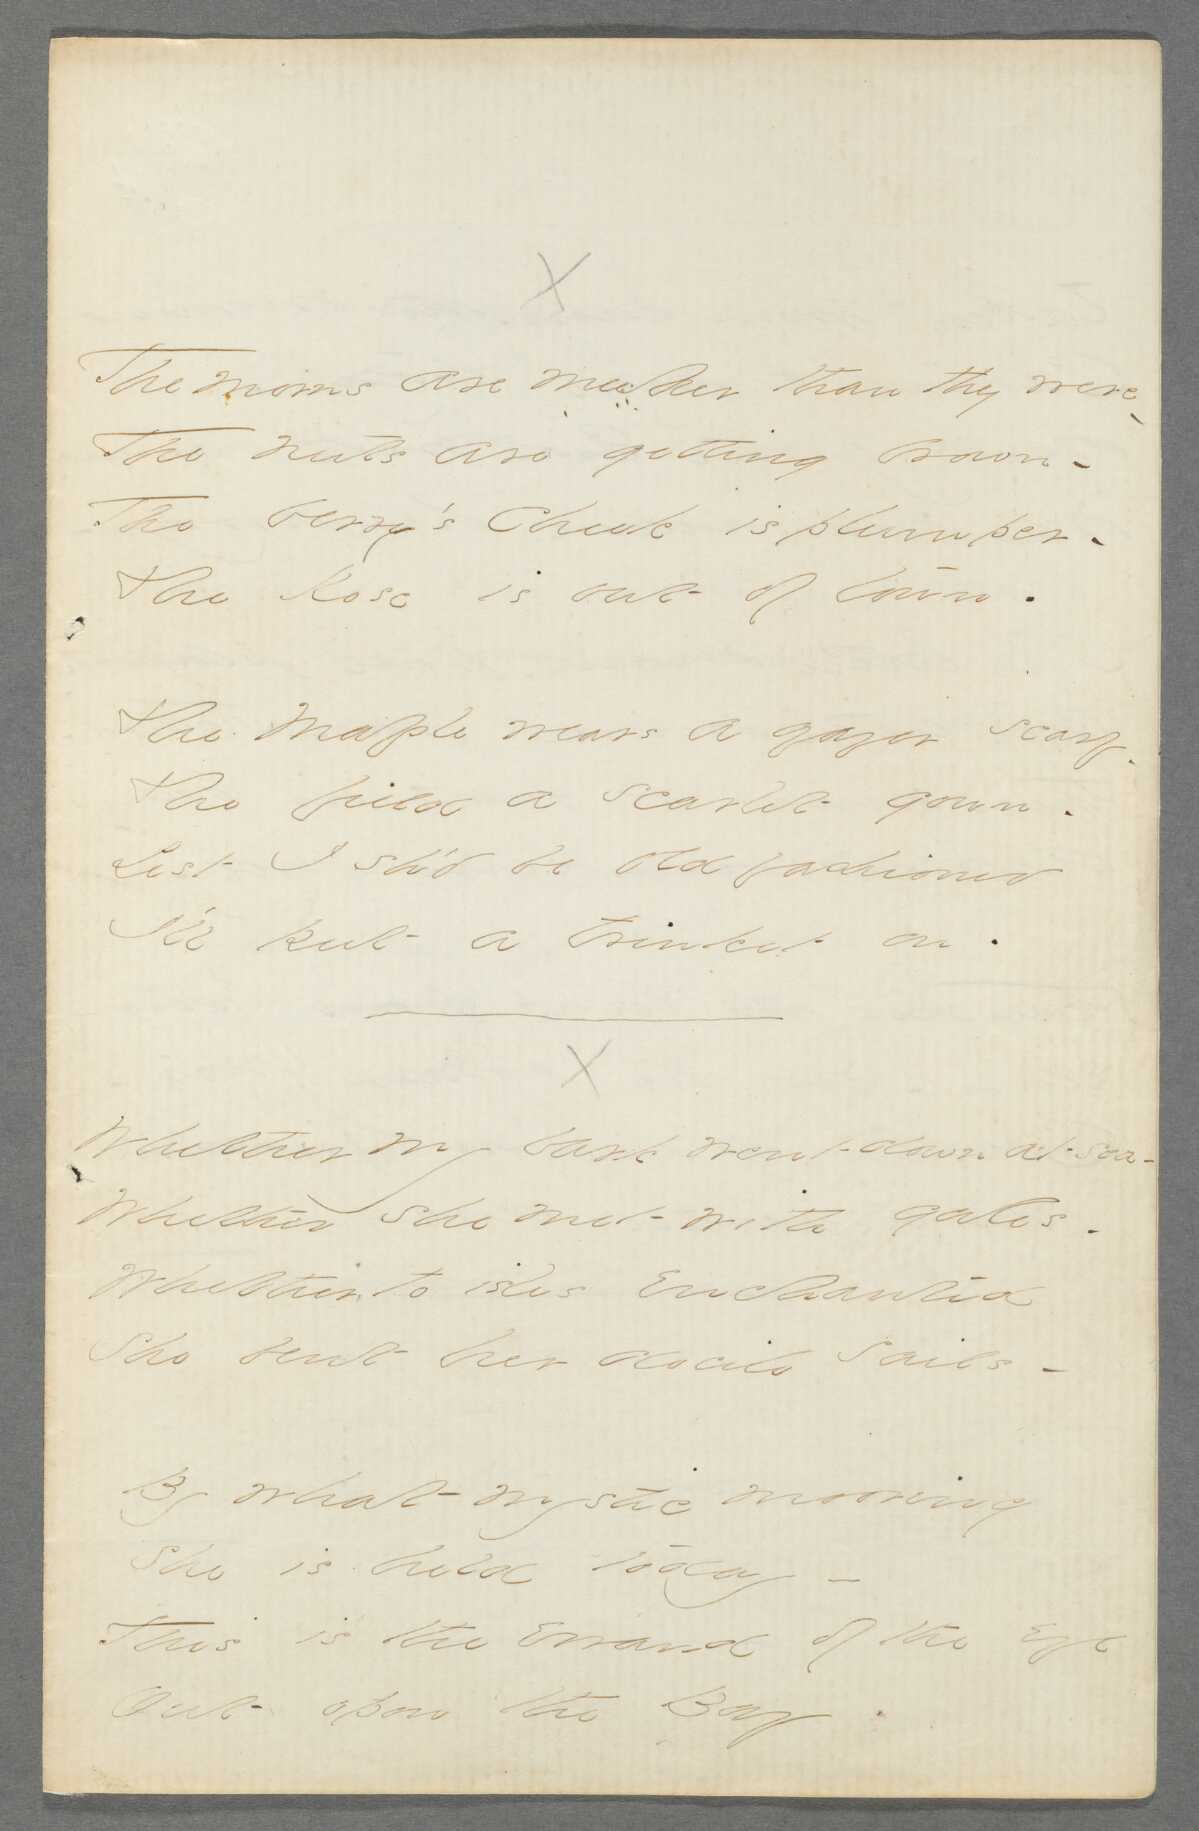 X
The morns are meeker than they were -
The nuts are getting brown -
The berry's cheek is plumper -
The Rose is out of town.
The Maple wears a gayer scarf -
The field a scarlet gown -
Lest I sh'd be old fashioned
I'll put a trinket on.
X
Whether my bark went down at sea -
Whether she met with gales -
Whether to isles enchanted
She bent her docile sails -
By what mystic mooring
She is held today -
This is the errand of the eye
Out upon the Bay.